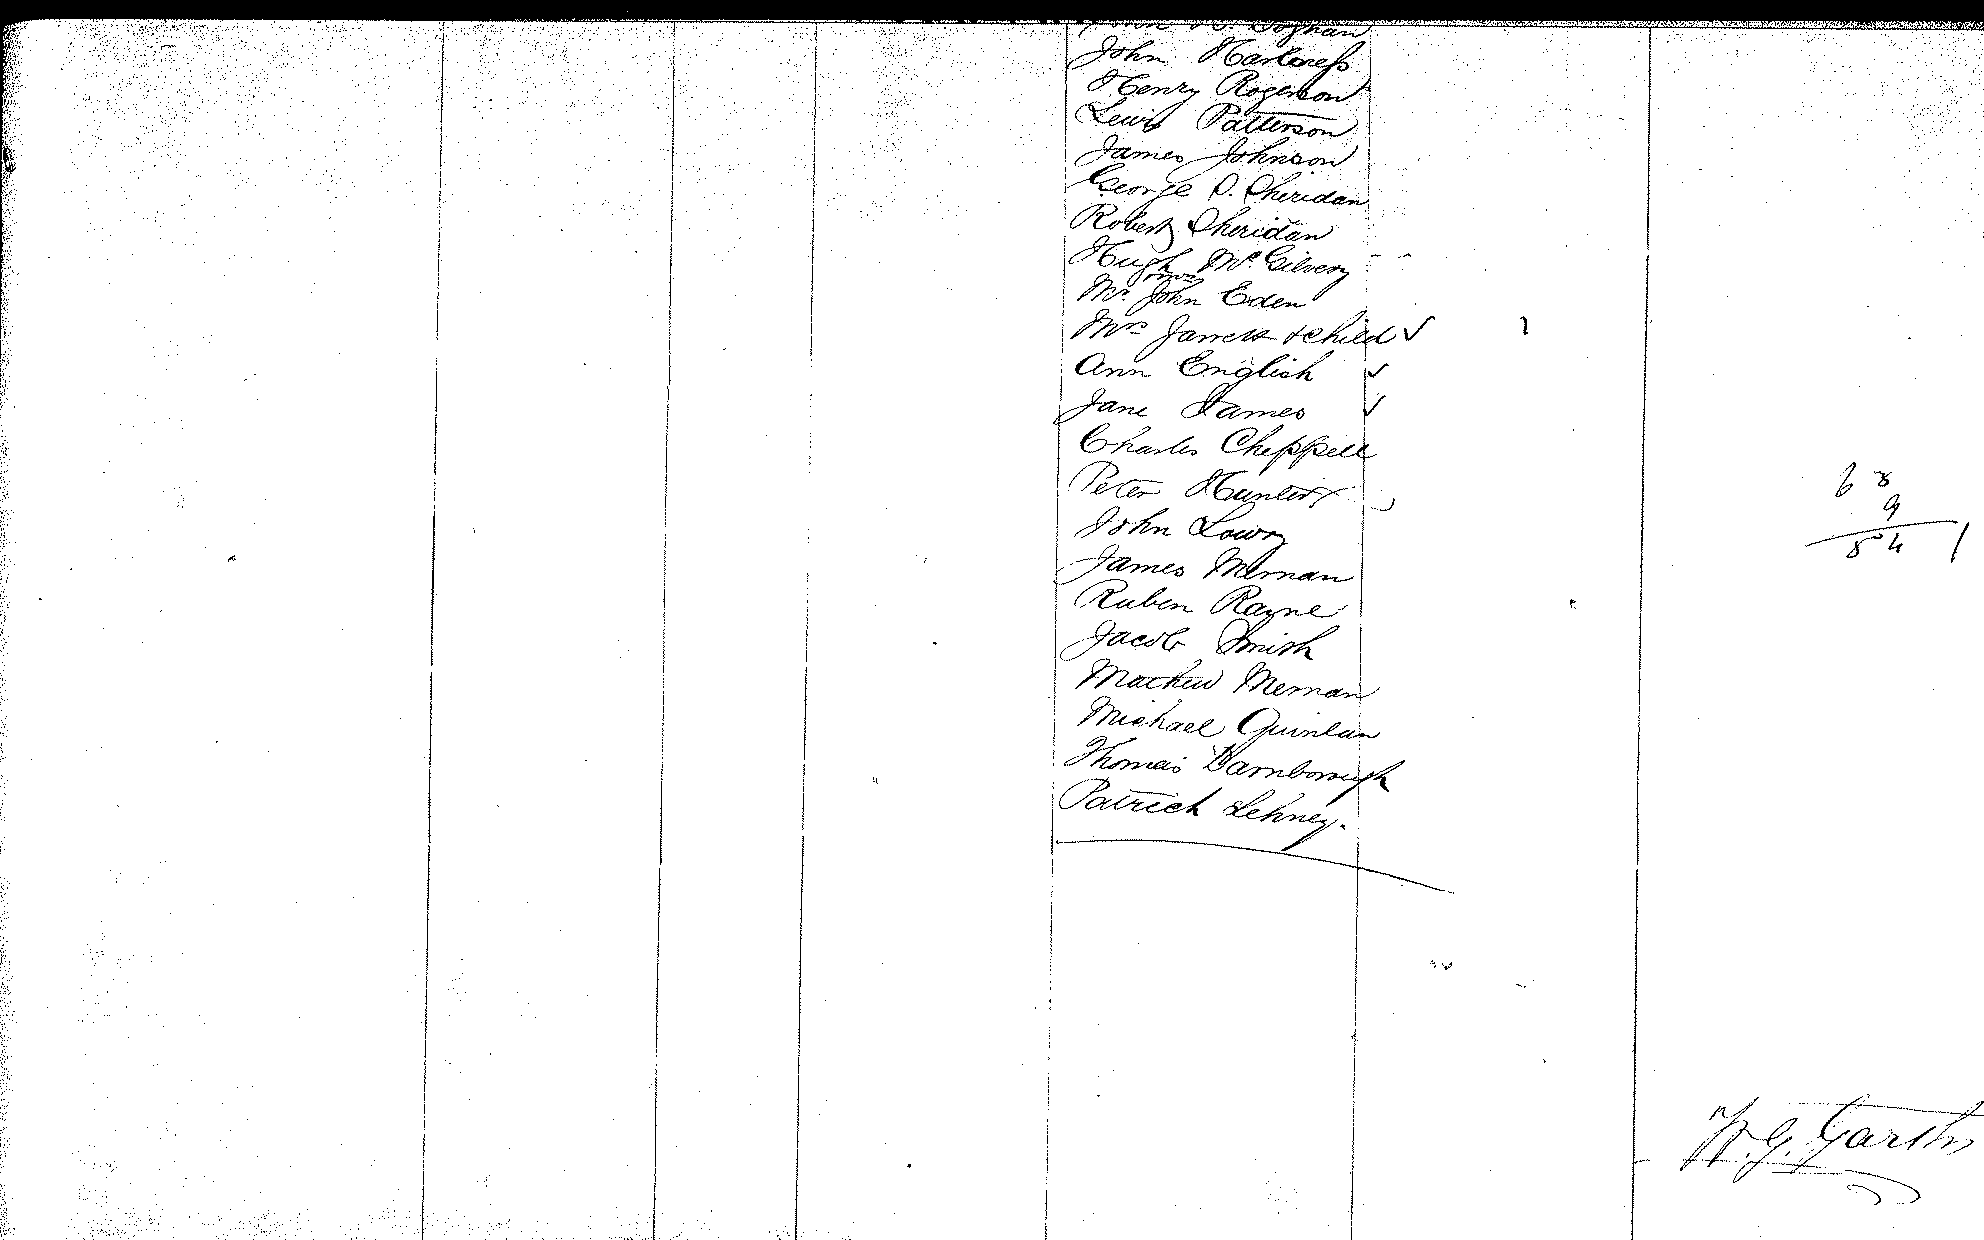 John Harkness
Henry Rogerson
Lewis Patterson
James Johnson
George P. Sheridan
Robert Sheridan
Hugh Mc. Gilvery
Mr. John Eden
Mrs Jarrett & child ✓ 1
Ann English ✓
Jane James ✓
Charles Cheppell
Peter Hunter
John Lowry
James Mernan
Ruben Rayne
Jacob Smith
Mathew Mernan
Michael Quinlan
Thomas Barnborough
Patrick Lehney.
68
9
54
W. G. Garth